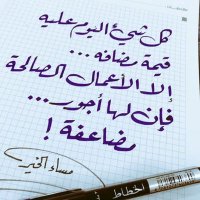 كل شيء اليوم عليه
قيمة مضافه...
إلا الأعمال الصالحة
فإن لها أجور...
مضاعفة!
مساء الخير
الخطاط